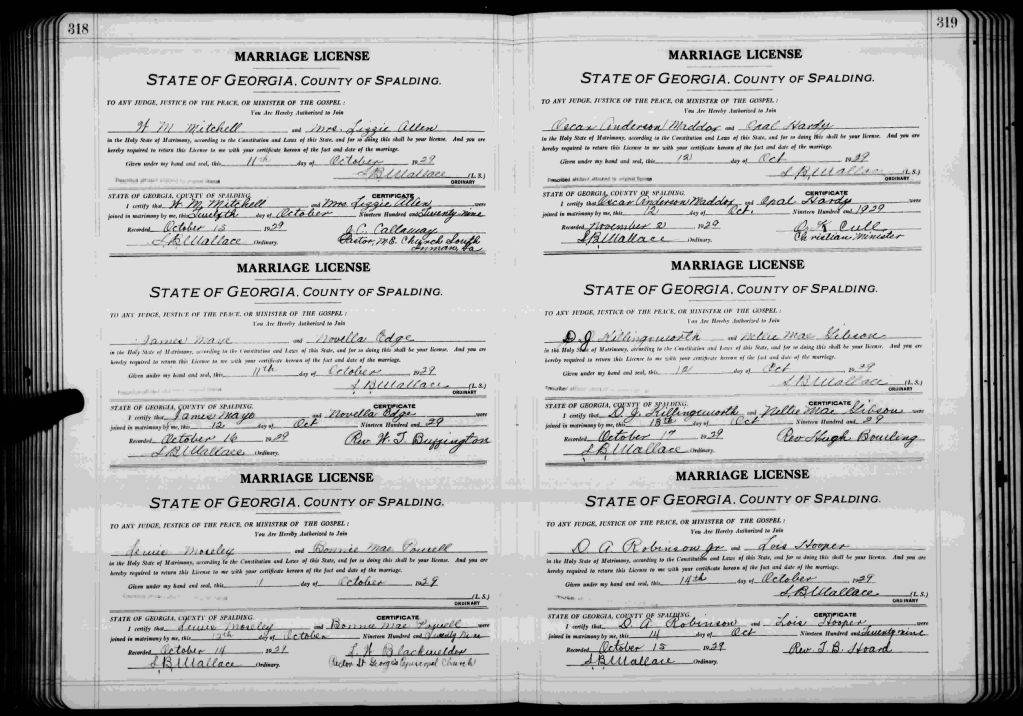 318
MARRIAGE LICENSE
STATE OF GEORGIA, COUNTY OF SPALDING.
TO ANY JUDGE, JUSTICE OF THE PEACE, OR MINISTER OF THE GOSPEL:
You Are Hereby Authorized to Join
W M Mitchell and Mrs. Lizzie Allen
in the Holy State of Matrimony, according to the Constitution and Laws of this State, and for so doing this shall be your license. And you are
hereby required to return this License to me with your certificate hereon of the fact and date of the marriage.
Given under my hand and seal, this 11th day of October 1929
S B Wallace (L. S.)
Prescribed affidavit attached to original license ORDINARY
STATE OF GEORGIA, COUNTY OF SPALDING. CERTIFICATE
I certify that W. M. Mitchell and Mrs Lizzie Allen were
joined in matrimony by me, this Twelfth day of October Nineteen Hundred and Twenty nine
Recorded October 15 1929 J. C. Callaway
S B Wallace Ordinary. Pastor, M.E. Church South
Inman, Ga
MARRIAGE LICENSE
STATE OF GEORGIA, COUNTY OF SPALDING.
TO ANY JUDGE, JUSTICE OF THE PEACE, OR MINISTER OF THE GOSPEL:
You Are Hereby Authorized to Join
James Maye and Novella Edge
in the Holy State of Matrimony, according to the Constitution and Laws of this State, and for so doing this shall be your license. And you are
hereby required to return this License to me with your certificate hereon of the fact and date of the marriage.
Given under my hand and seal, this 11th day of October 1929
S B Wallace (L. S.)
ORDINARY
STATE OF GEORGIA, COUNTY OF SPALDING. CERTIFICATE
I certify that James Mayo and Novella Edge were
joined in matrimony by me, this 12 day of Oct Nineteen Hundred and 29
Recorded October 16 1929 Rev. W. T. Buffington
S B Wallace Ordinary.
MARRIAGE LICENSE
STATE OF GEORGIA, COUNTY OF SPALDING.
TO ANY JUDGE, JUSTICE OF THE PEACE, OR MINISTER OF THE GOSPEL:
You Are Hereby Authorized to Join
Moseley and Bonnie Mae Powell
in the Holy State of Matrimony, according to the Constitution and Laws of this State, and for so doing this shall be your license. And you are
hereby required to return this License to me with your certificate hereon of the fact and date of the marriage.
Given under my hand and seal, this day of October 1929
(L. S.)
ORDINARY
STATE OF GEORGIA, COUNTY OF SPALDING. CERTIFICATE
I certify that Moseley and Bonnie Mae Powell were
joined in matrimony by me, this 12th day of October Nineteen Hundred and Twenty Nine
Recorded October 14 1929 Blackwelder
S B Wallace Ordinary. Rector St George's Episcopal Church
319
MARRIAGE LICENSE
STATE OF GEORGIA, COUNTY OF SPALDING.
TO ANY JUDGE, JUSTICE OF THE PEACE, OR MINISTER OF THE GOSPEL:
You Are Hereby Authorized to Join
Oscar Anderson Maddox and Opal Hardy
in the Holy State of Matrimony, according to the Constitution and Laws of this State, and for so doing this shall be your license. And you are
hereby required to return this License to me with your certificate hereon of the fact and date of the marriage.
Given under my hand and seal, this 12 day of Oct 1929
S B Wallace (L. S.)
Prescribed affidavit attached to original license ORDINARY
STATE OF GEORGIA, COUNTY OF SPALDING. CERTIFICATE
I certify that Oscar Anderson Maddox and Opal Hardy were
joined in matrimony by me, this 12 day of Oct. Nineteen Hundred and 1929
Recorded November 2 1929 O. K. Cull
S B Wallace Ordinary. Christian Minister
MARRIAGE LICENSE
STATE OF GEORGIA, COUNTY OF SPALDING.
TO ANY JUDGE, JUSTICE OF THE PEACE, OR MINISTER OF THE GOSPEL:
You Are Hereby Authorized to Join
D. J Killingsworth and Nellie Mae Gibson
in the Holy State of Matrimony, according to the Constitution and Laws of this State, and for so doing this shall be your license. And you are
hereby required to return this License to me with your certificate hereon of the fact and date of the marriage.
Given under my hand and seal, this 12 day of Oct 1929
S B Wallace (L. S.)
ORDINARY
STATE OF GEORGIA, COUNTY OF SPALDING. CERTIFICATE
I certify that D. J. Killingsworth and Nellie Mae Gibson were
joined in matrimony by me, this 13th day of Oct Nineteen Hundred and 29
Recorded October 17 1929 Rev Hugh Bowling
S B Wallace Ordinary.
MARRIAGE LICENSE
STATE OF GEORGIA, COUNTY OF SPALDING.
TO ANY JUDGE, JUSTICE OF THE PEACE, OR MINISTER OF THE GOSPEL:
You Are Hereby Authorized to Join
D. A Robinson Jr and Lois Hooper
in the Holy State of Matrimony, according to the Constitution and Laws of this State, and for so doing this shall be your license. And you are
hereby required to return this License to me with your certificate hereon of the fact and date of the marriage.
Given under my hand and seal, this 14th day of October 1929
S B Wallace (L. S.)
ORDINARY
STATE OF GEORGIA, COUNTY OF SPALDING. CERTIFICATE
I certify that D. A Robinson and Lois Hooper were
joined in matrimony by me, this 14 day of Oct Nineteen Hundred and Twenty nine
Recorded October 15 1929 Rev. T. B. Hoard
S B Wallace Ordinary.